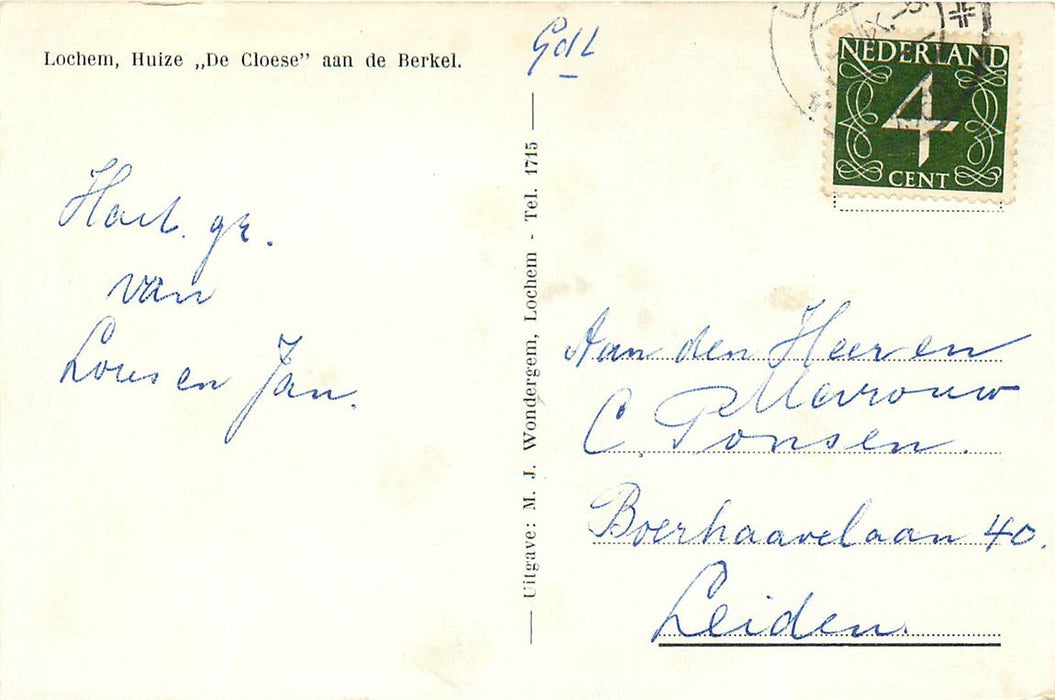 Lochem, Huize „De Cloese” aan de Berkel.
Hart. gr.
van
Lous en Jan.
Uitgave: M. J. Wondergem, Lochem - Tel. 1715
Gdl
NEDERLAND
4
CENT
Aan den Heer en
Mevrouw
C. Ponsen.
Boerhaavelaan 40.
Leiden.